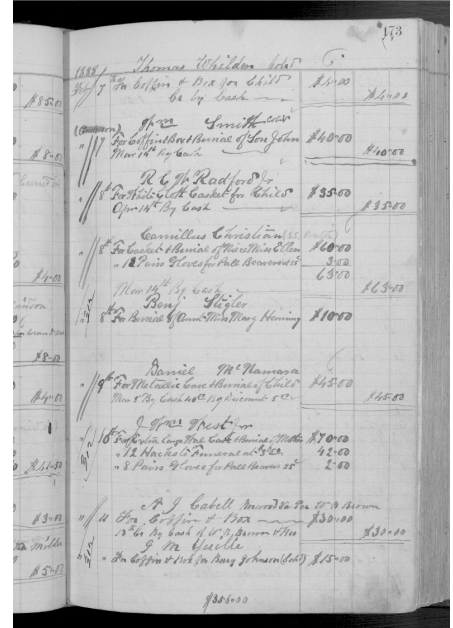 173
1888 Thomas Whilden cold
7th For Coffin & Box for Child $4.00
Cr by Cash $4.00
Wm Smith cold
7 For Coffin Box & Burial of Son John $40.00
Mar 14th By Cash $40.00
R C W Radford Jr
8th For White Gloss Casket for Child $35.00
Apr 14th By Cash $35.00
Camillus Christian
8th For Casket & Burial of Niece Miss Ellen $60.00
" 12 Pairs Gloves for Pall Bearers 25 3.00
63.00
Mar 14th By Cash $63.00
Benj Stigler
8th For Burial of Aunt Miss Mary Henning $10.00
Daniel McNamara
9th For Metallic Case & Burial of Child $45.00
By Cash 40 By Discount 5 $45.00
J Wm West Jr
10th For Large Wal Case & Burial of Mother $70.00
" 12 Hacks to Funeral at 3.50 42.00
" 8 Pairs Gloves for Pall Bearers 25 2.00
A J Cabell W A Brown
11 For Coffin & Box $30.00
Cr By Cash of W A Brown $30.00
J M Yuille
" For Coffin & Box for Johnson (Cold) $15.00
$356.00
$85.00
$8.00
$4.00
$8.00
$4.00
$3.00
$5.00